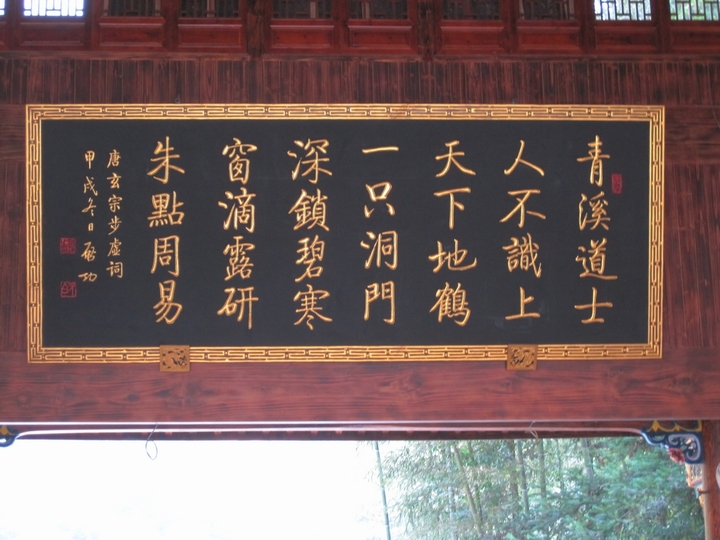 青溪道士
人不識上
天下地鶴
一只洞門
深鎖碧寒
窗滴露研
朱點周易
唐玄宗步虛詞
甲戌冬日啟功